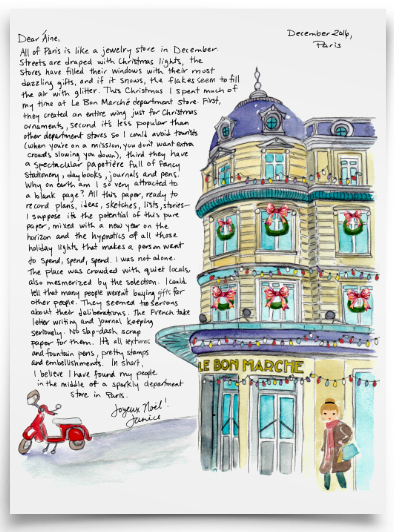 December 2016,
Paris
Dear Áine,
All of Paris is like a jewelry store in December
Streets are draped with Christmas lights, the
stores have filled their windows with their most
dazzling gifts, and if it snows, the flakes seem to fill
the air with glitter. This Christmas I spent much of
my time at Le Bon Marché department store. First,
they created an entire wing just for Christmas
ornaments, second it's less popular than
other department stores so I could avoid tourists
(when you're on a mission, you don't want extra
crowds slowing you down), third they have
a spectacular papetière full of fancy
stationery, day books, journals and pens.
Why on earth am I so very attracted to
a blank page? All this paper, ready to
record plans, ideas, sketches, lists, stories-
I suppose it's the potential of this pure
paper, mixed with a new year on the
horizon and the hypnotics of all those
holiday lights that makes a person want
to spend, spend, spend. I was not alone.
The place was crowded with quiet locals,
also mesmerized by the selection. I could
tell that many people weren't buying gifts for
other people. They seemed too serious
about their deliberations. The French take
letter writing and journal keeping
seriously. No slap-dash scrap
paper for them. It's all textures
and fountain pens, pretty stamps
and embellishments. In short,
I believe I have found my people
in the middle of a sparkly department
store in Paris.
Joyeux Noël!
Janice
LE BON MARCHE